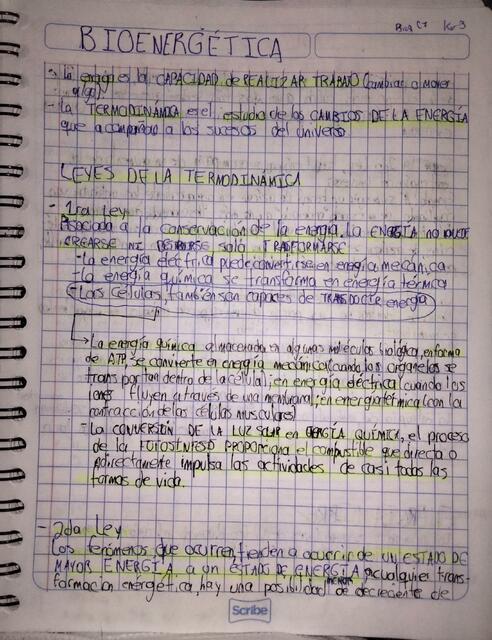 Bio C7 Kr 3
BIOENERGÉTICA
- La energía es la CAPACIDAD de REALIZAR TRABAJO (cambiar o mover
algo)
- La TERMODINÁMICA es el estudio de los CAMBIOS DE LA ENERGÍA
que acompañan a los sucesos del universo
LEYES DE LA TERMODINÁMICA
- 1ra Ley
Asociada a la conservación de la energía. La ENERGÍA no PUEDE
CREARSE NI solo TRASFORMARSE
- la energía eléctrica puede convertirse en energía mecánica
- la energía química se transforma en energía térmica
Las células, también son capaces de TRASDUCIR energía
→ La energía química almacenada en algunas moléculas biológica, en forma
de ATP, se convierte en energía mecánica (cuando los organelos se
transportan dentro de la célula); en energía eléctrica (cuando los
iones fluyen a través de una membrana); en energía térmica (con la
contracción de las células musculares)
- La CONVERSIÓN DE LA LUZ SOLAR en ENERGÍA QUÍMICA, el proceso
de la FOTOSÍNTESIS PROPORCIONA el combustible que directa o
indirectamente impulsa las actividades de casi todas las
formas de vida.
- 2da Ley
Los fenómenos que ocurren, tienden a ocurrir de UN ESTADO DE
MAYOR ENERGÍA a un ESTADO DE MENOR ENERGÍA, cualquier trans-
formación energética, hay una posibilidad decreciente de
Scribe